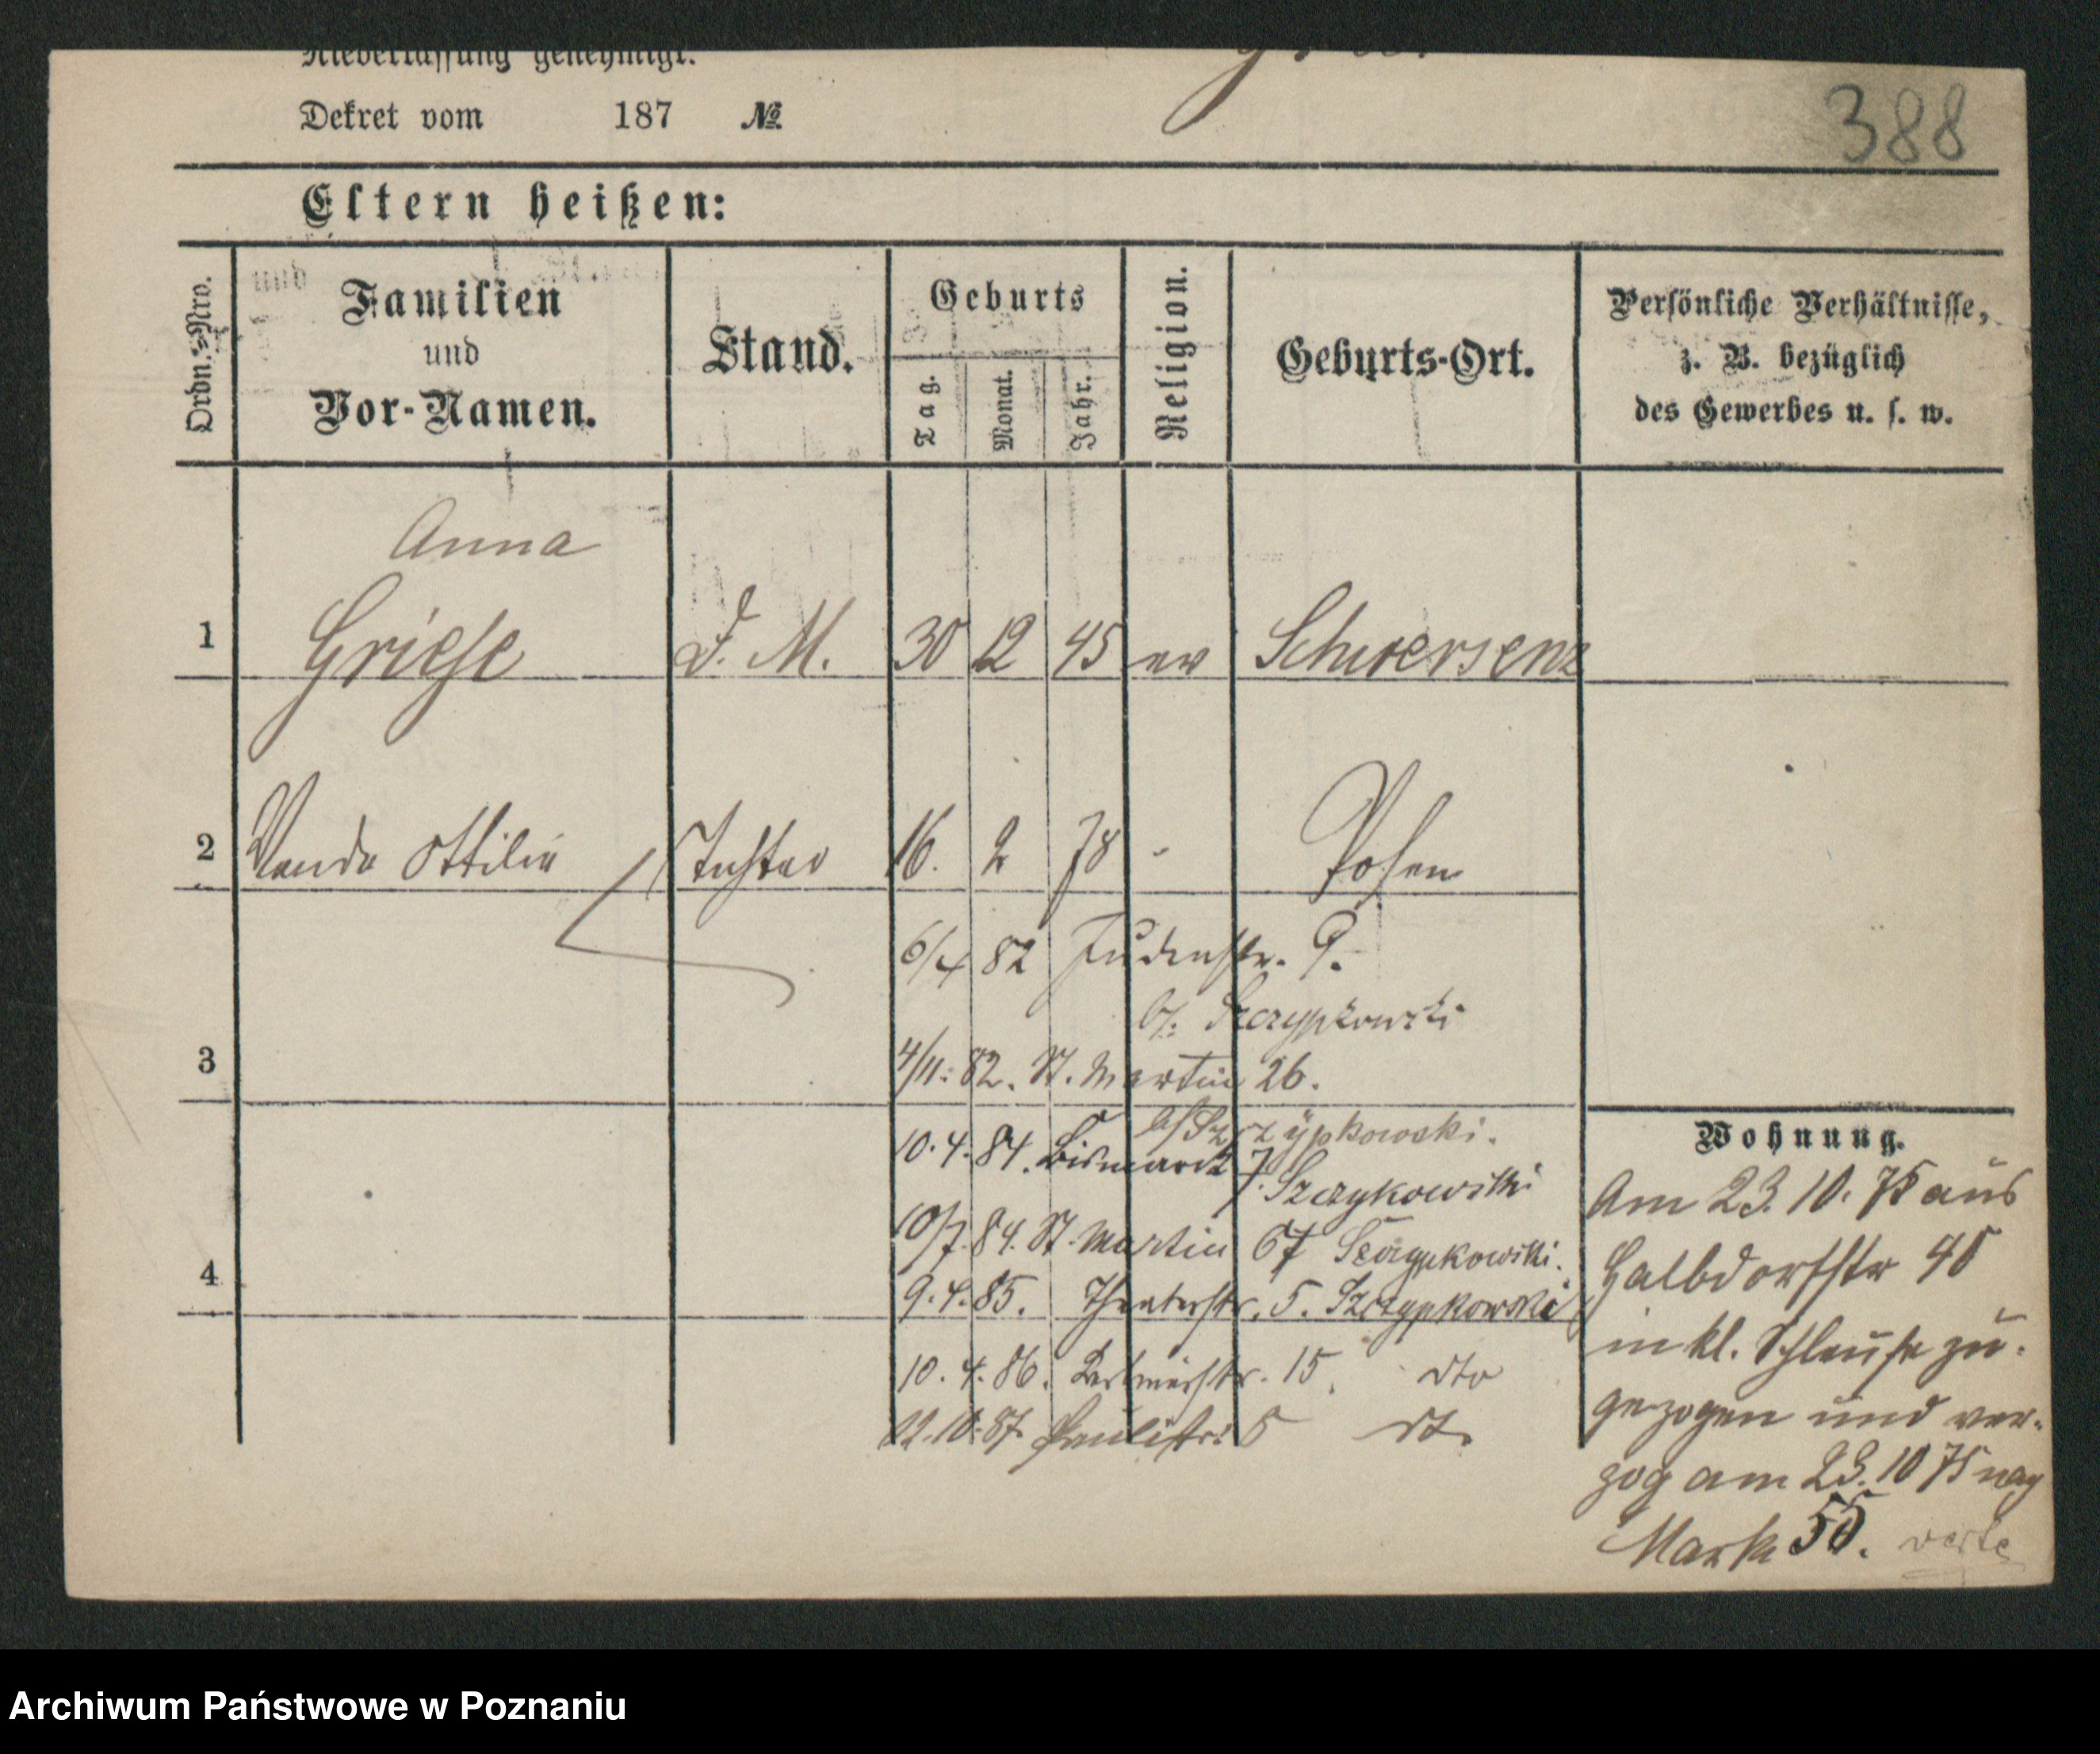 Niederlassung genehmigt.
Dekret vom 187 №
388
Eltern heißen:
Ordn.=Nro.
Familien
und
Vor-Namen.
Stand.
Geburts
Tag.
Monat.
Jahr.
Religion.
Geburts-Ort.
Persönliche Verhältnisse,
z. B. bezüglich
des Gewerbes u. s. w.
Anna
1 Griese D. M. 30 12 45 ev Schwersenz
2 Wanda Ottilie Tochter 16. 2 78 - Posen
6/4 82 Judenstr. 9.
b/. Szczypkowski
3
4/11. 82. St. Martin 26.
b/ Szczypkowski.
10. 4. 84. Bismarck 7. Szczykowski
10/7. 84. St. Martin 67 Szczypkowski.
4
9. 4. 85. Theaterstr. 5. Szczypkowski
10. 4. 86. 15. dto
12. 10. 87. Paulistr. 5 dt.
Wohnung.
Am 23. 10. 75 aus
Halbdorfstr 40
in kl. Schleuse zu-
gezogen und ver-
zog am 23. 10 75 nach
Markt 55. verte
Archiwum Państwowe w Poznaniu